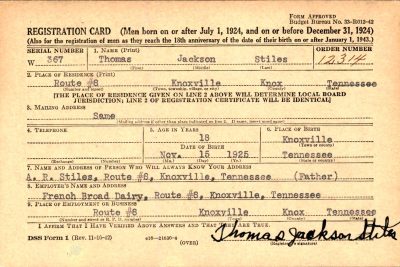 FORM APPROVED
Budget Bureau No. 33-R012-42
REGISTRATION CARD (Men born on or after July 1, 1924, and on or before December 31, 1924)
(Also for the registration of men as they reach the 18th anniversary of the date of their birth on or after January 1, 1943.)
SERIAL NUMBER 1. NAME (Print) ORDER NUMBER
W 367 Thomas Jackson Stiles 12314
(First) (Middle) (Last)
2. PLACE OF RESIDENCE (Print)
Route #8 Knoxville Knox Tennessee
(Number and street) (Town, township, village, or city) (County) (State)
[THE PLACE OF RESIDENCE GIVEN ON LINE 2 ABOVE WILL DETERMINE LOCAL BOARD
JURISDICTION; LINE 2 OF REGISTRATION CERTIFICATE WILL BE IDENTICAL]
3. MAILING ADDRESS
Same
[Mailing address if other than place indicated on line 2. If same, insert word same]
4. TELEPHONE 5. AGE IN YEARS 6. PLACE OF BIRTH
18 Knoxville
DATE OF BIRTH (Town or county)
Nov. 15 1925 Tennessee
(Exchange) (Number) (Mo.) (Day) (Yr.) (State or country)
7. NAME AND ADDRESS OF PERSON WHO WILL ALWAYS KNOW YOUR ADDRESS
A. R. Stiles, Route #8, Knoxville, Tennessee (Father)
8. EMPLOYER'S NAME AND ADDRESS
French Broad Dairy, Route #8, Knoxville, Tennessee
9. PLACE OF EMPLOYMENT OR BUSINESS
Route #8 Knoxville Knox Tennessee
(Number and street or R. F. D. number) (Town) (County) (State)
I AFFIRM THAT I HAVE VERIFIED ABOVE ANSWERS AND THAT THEY ARE TRUE.
Thomas Jackson Stiles
DSS Form 1 (Rev. 11-16-42) (OVER) (Registrant's signature)